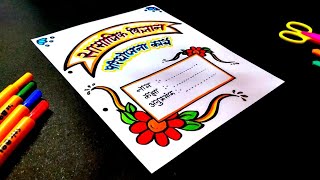 सामाजिक विज्ञान
परियोजना कार्य
नाम :
कक्षा :
अनुक्रमांक :